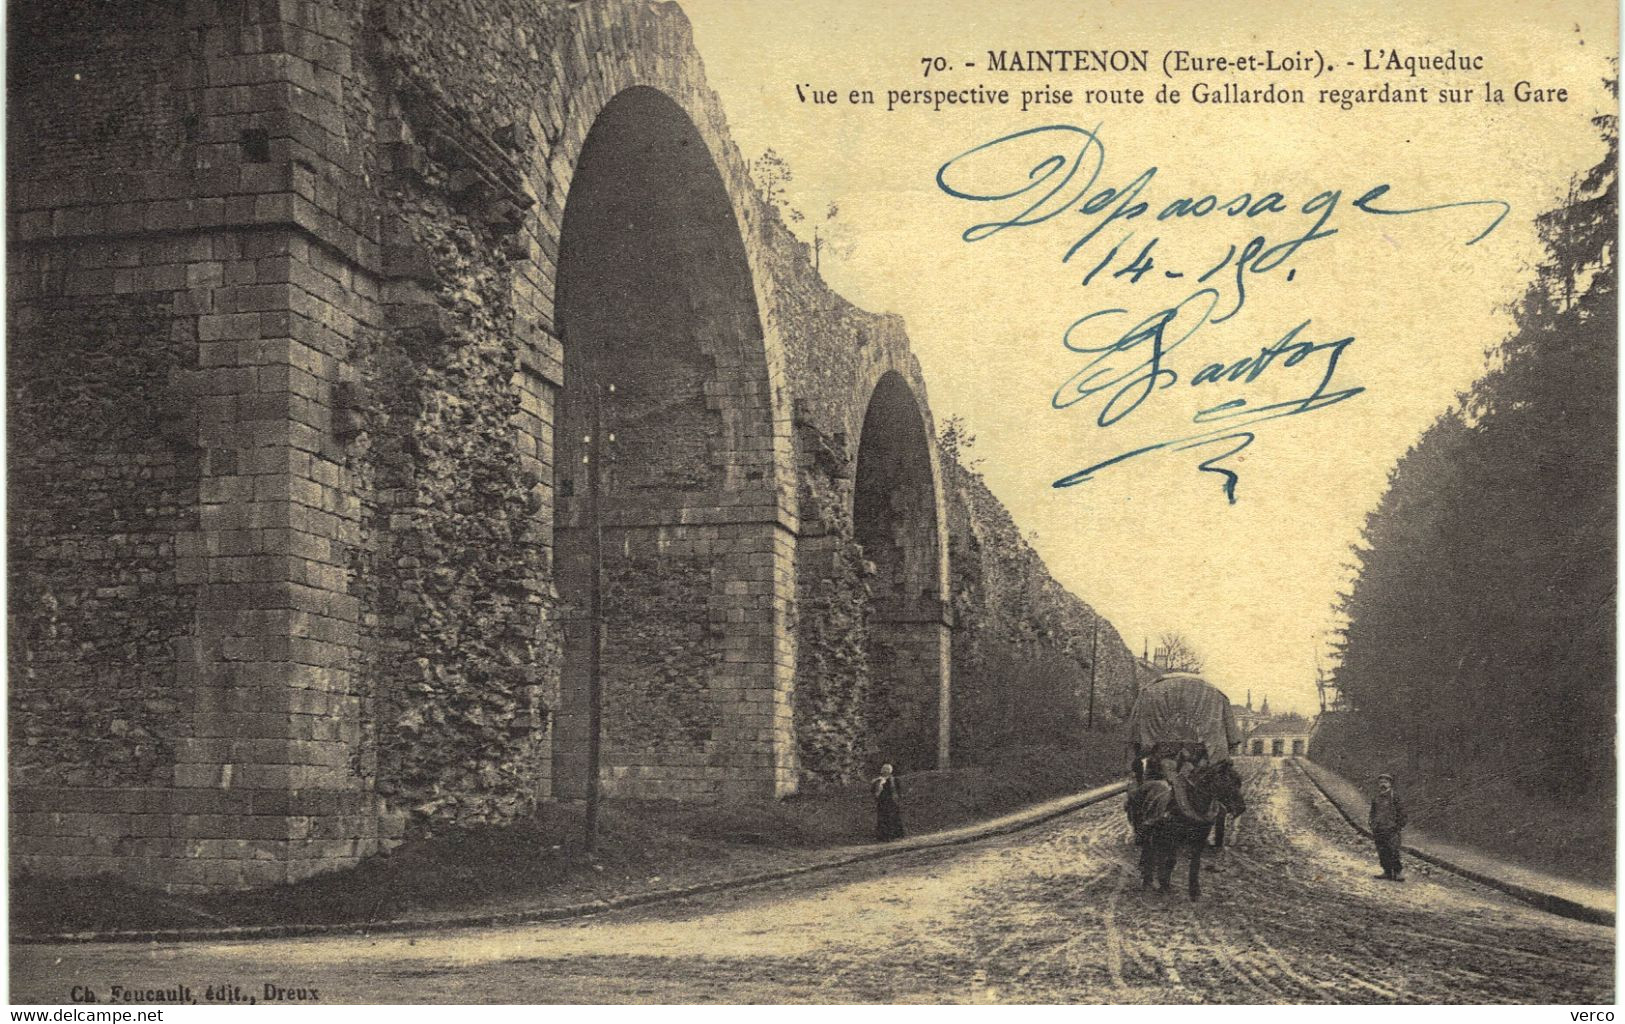 70. - MAINTENON (Eure-et-Loir). - L'Aqueduc
Vue en perspective prise route de Gallardon regardant sur la Gare
Depassage
14-19.
Ch. Foucault, édit., Dreux
www.delcampe.net
verco